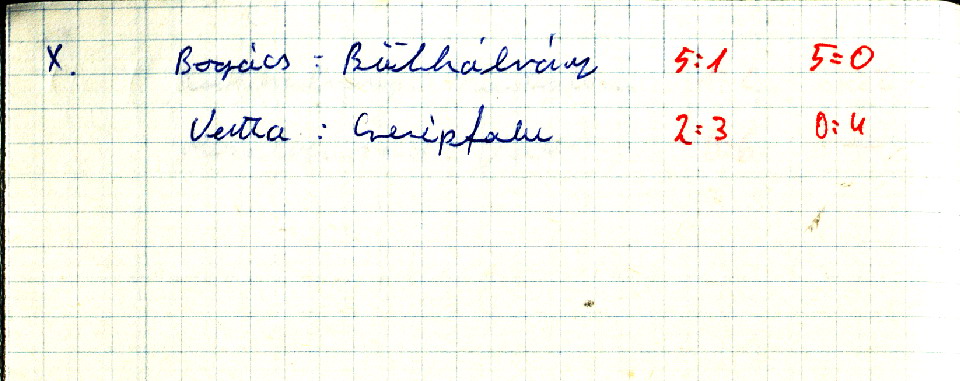 X. Bogács : Bükkábrány 5:1 5=0
Vatta : Cserépfalu 2:3 0:4